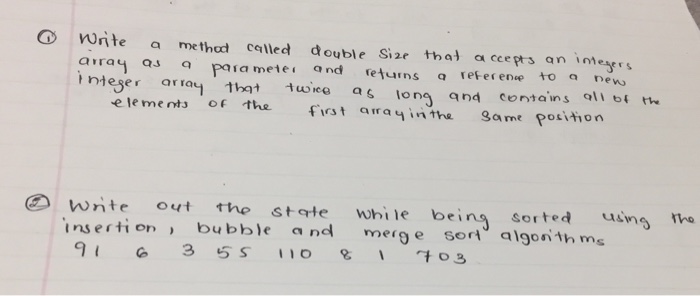 ① Write a method called double size that accepts an integers
array as a parameter and returns a reference to a new
integer array that twice as long and contains all of the
elements of the first array in the same position
② Write out the state while being sorted using the
insertion, bubble and merge sort algorithms
91 6 3 55 110 8 1 703